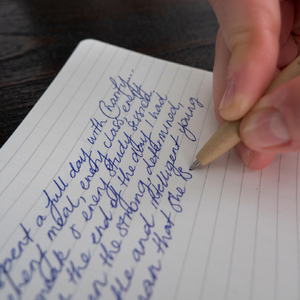 spent a full day with Charity...
meal, every class, every
& every study session.
the end of the day I had
the strong, determined,
and intelligent young
than that she